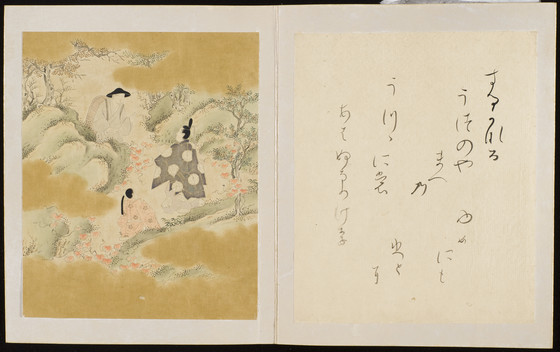 するかなる
うつのや
まへ
乃
うつゝに裳
ゆめ
にも
ひと
に
あはぬなりけり